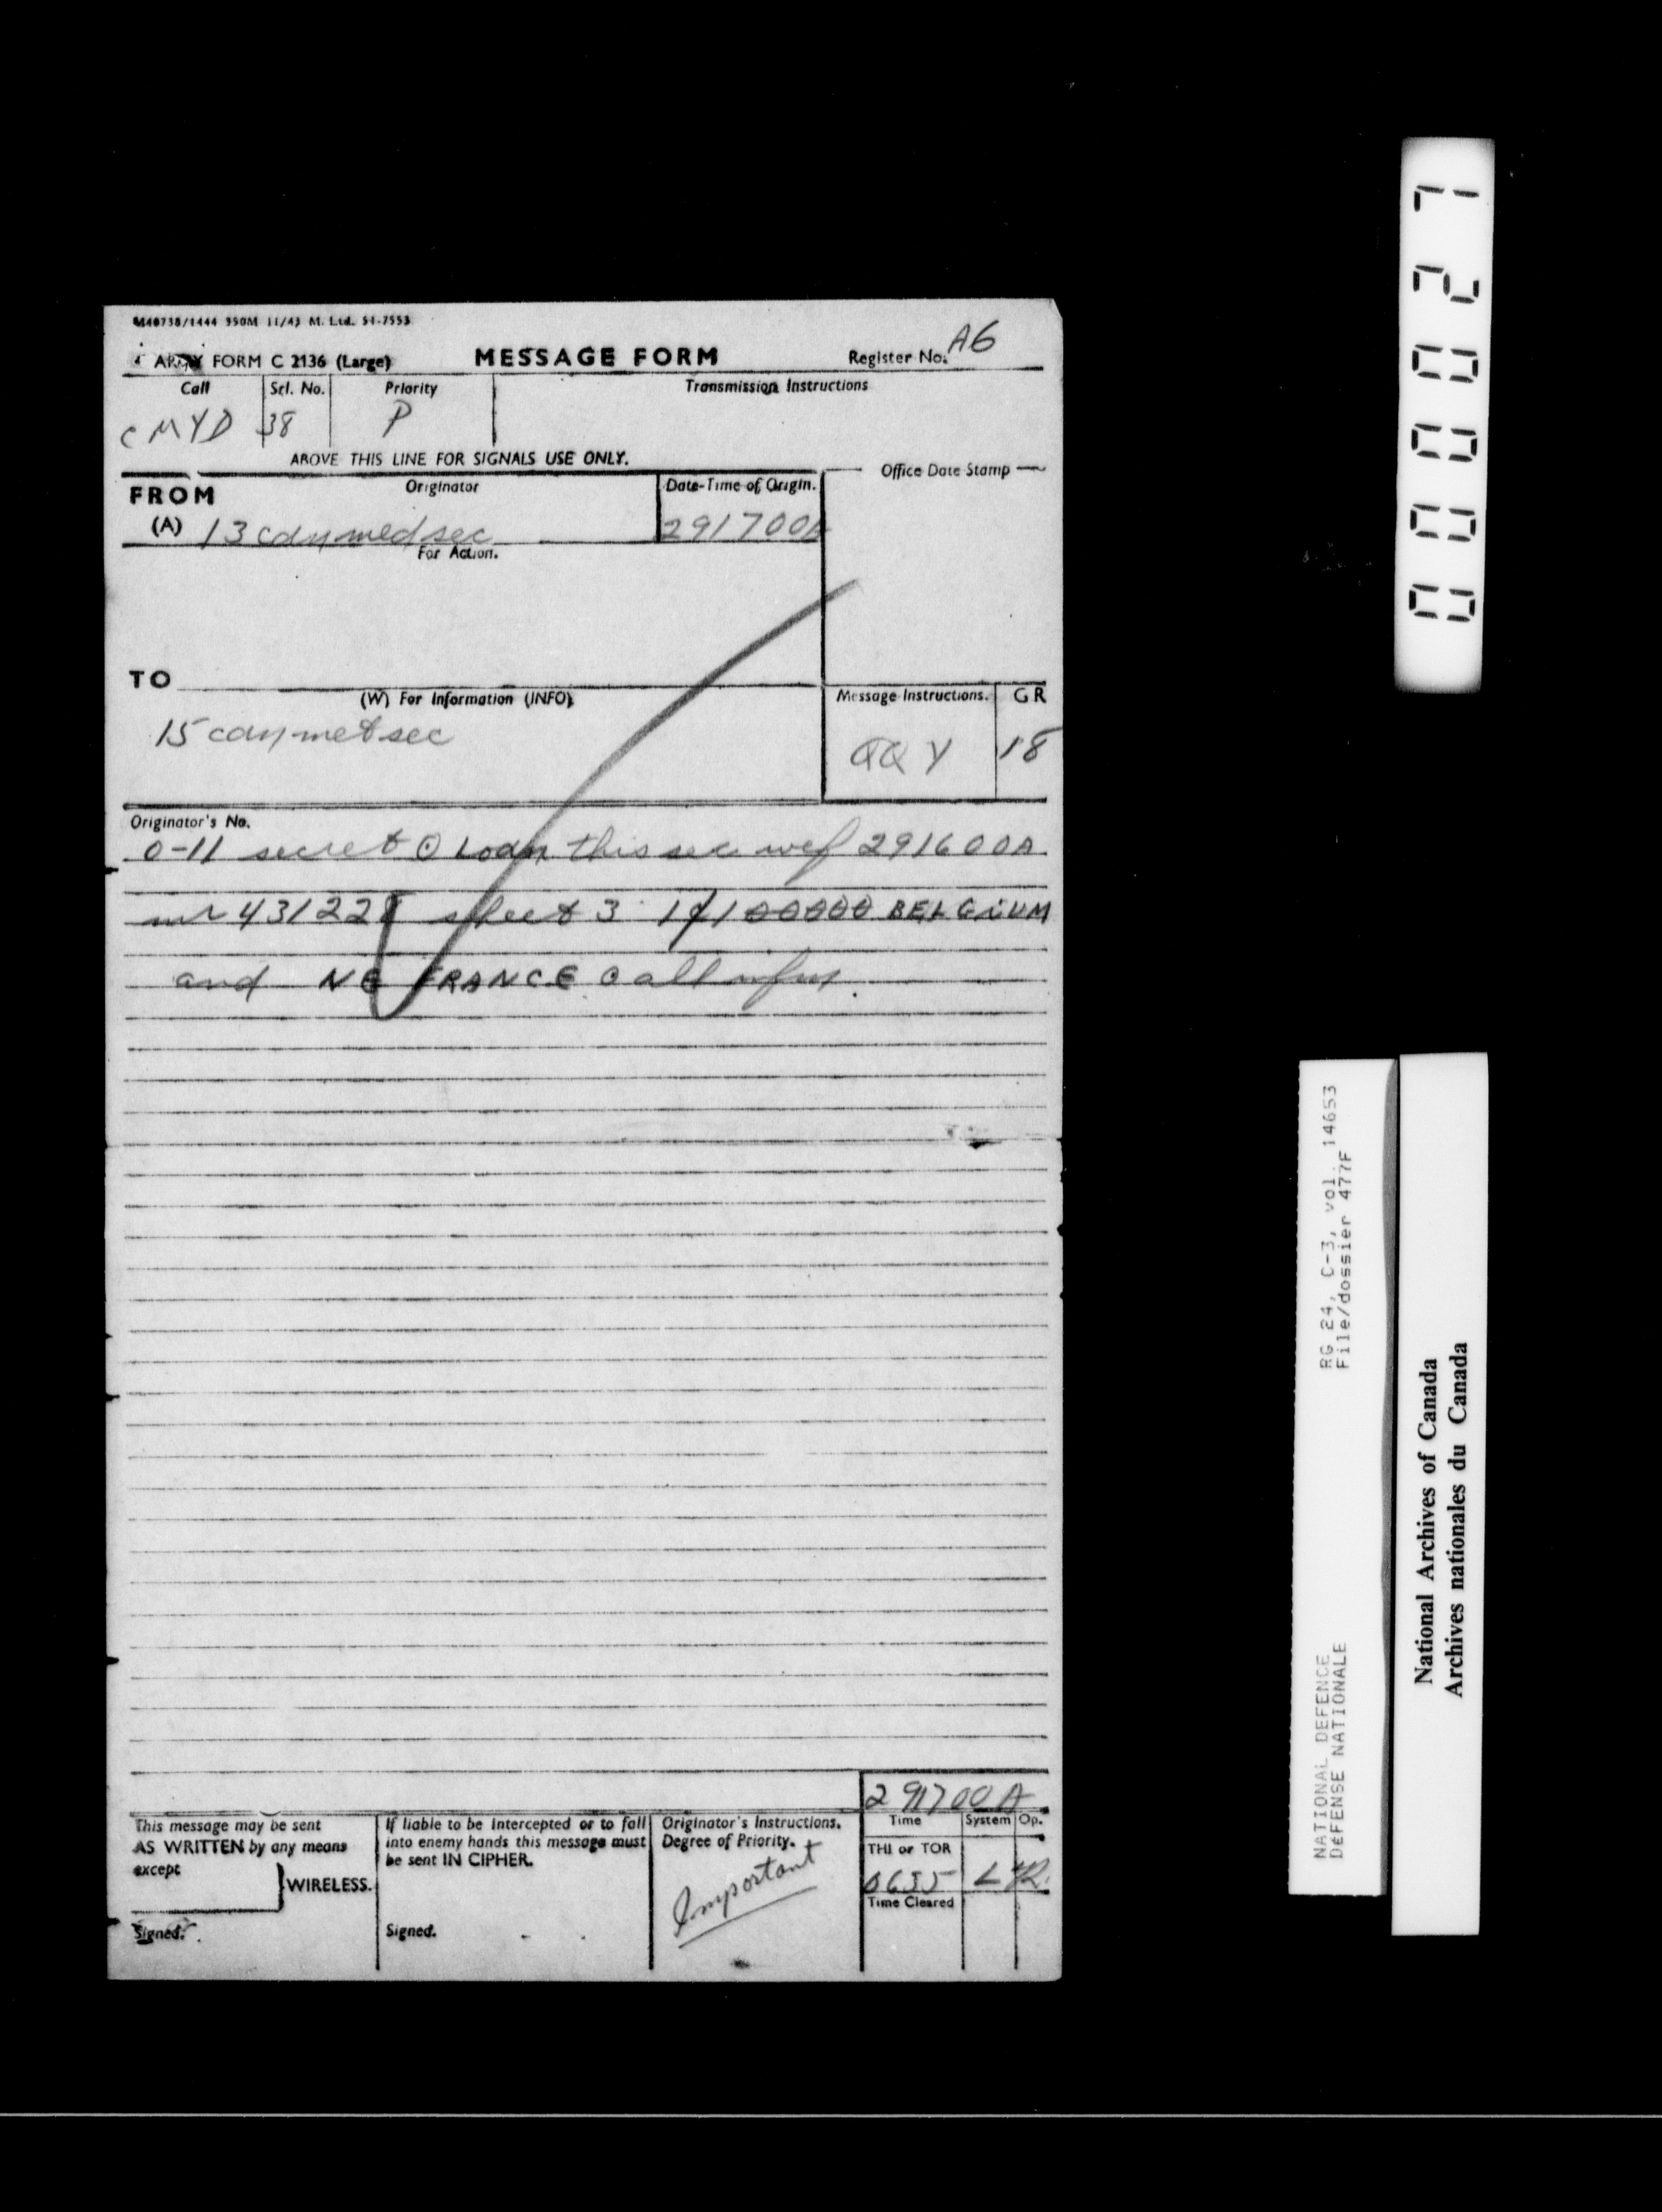 M40738/1444 350M 11/43 M. Ltd. 51-7553
ARMY FORM C 2136 (Large) MESSAGE FORM Register No. A6
Call Srl. No. Priority Transmission Instructions
CMYD 38 P
ABOVE THIS LINE FOR SIGNALS USE ONLY.
FROM Originator Date-Time of Origin. Office Date Stamp
(A) 13 cdn med sec 291700A
For Action.
TO
(W) For Information (INFO) Message Instructions. GR
15 cdn met sec QQY 18
Originator's No.
0-11 secret ⊙ Locn this sec wef 291600A
mr 431228 sheet 3 1/100000 BELGIUM
and NE FRANCE ⊙ all
291700A
This message may be sent
AS WRITTEN by any means
except
WIRELESS.
Signed.
If liable to be intercepted or to fall
into enemy hands this message must
be sent IN CIPHER.
Signed.
Originator's Instructions.
Degree of Priority.
Important
Time System Op.
THI or TOR
0635
Time Cleared
000027
RG 24, C-3, vol. 14653
File/dossier 477F
NATIONAL DEFENCE
DÉFENSE NATIONALE
National Archives of Canada
Archives nationales du Canada